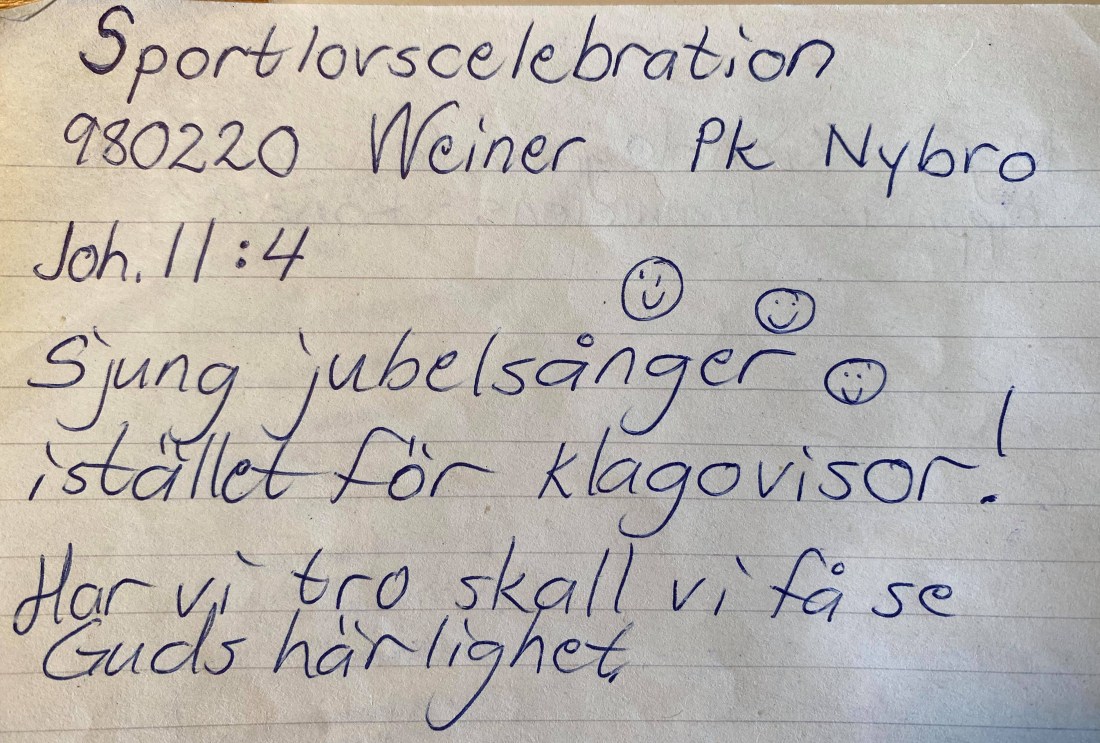 Sportlovscelebration
980220 Weiner Pk Nybro
Joh. 11:4
Sjung jubelsånger
istället för klagovisor!
Har vi tro skall vi få se
Guds härlighet.